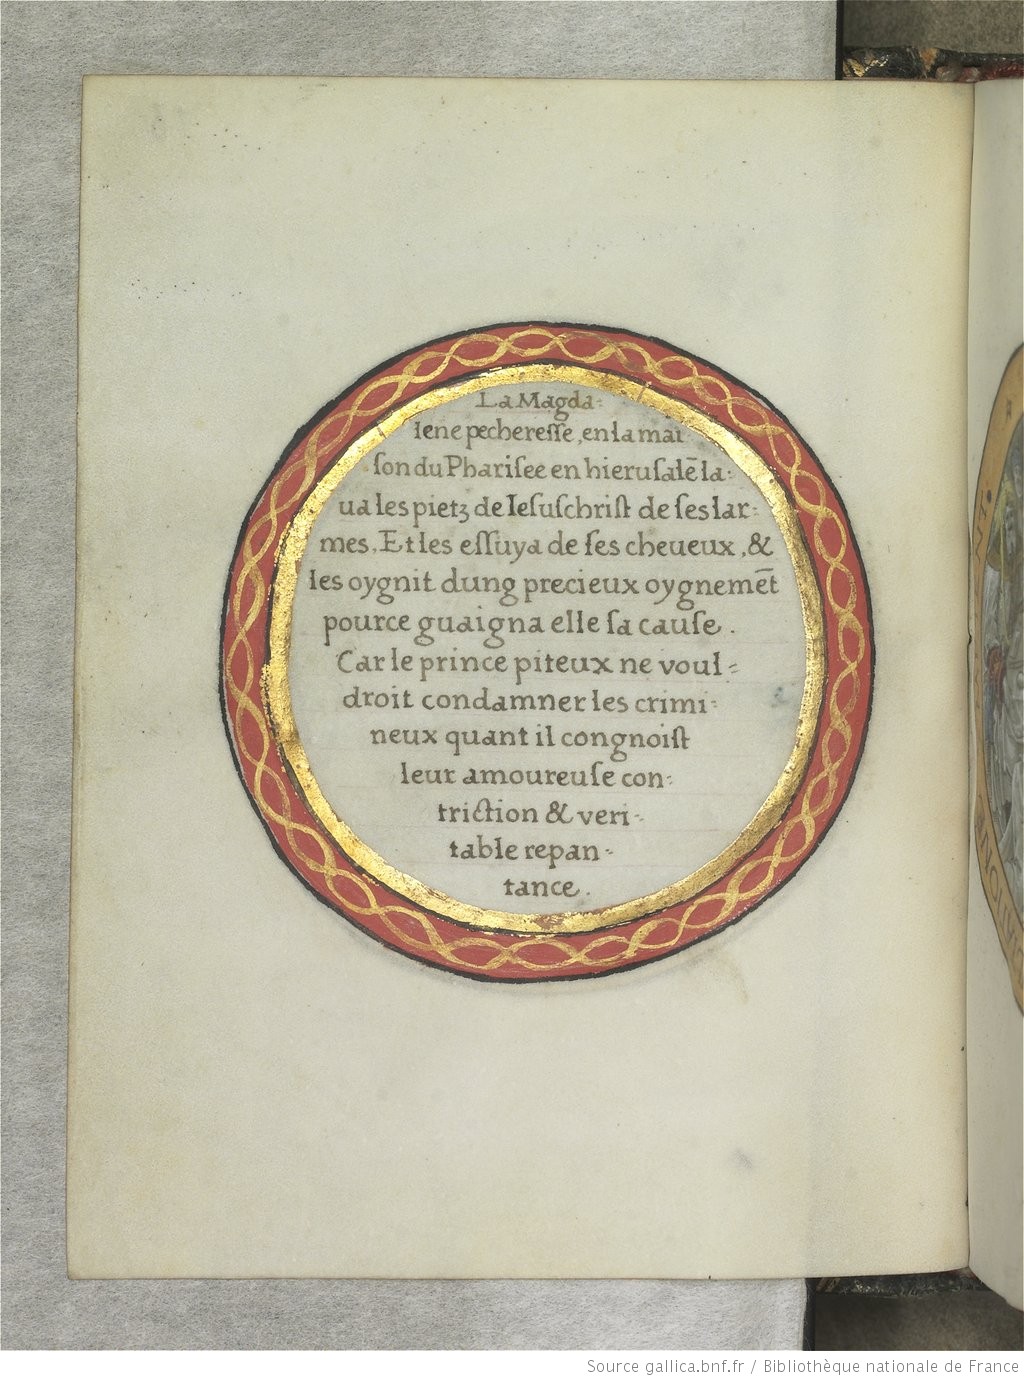 La Magda-
lene pecheresse, en la mai
son du Pharisee en hierusalē la-
ua les pietz de Iesuschrist de ses lar-
mes. Et les essuya de ses cheueux, &
les oygnit dung precieux oygnemēt
pource guaigna elle sa cause.
Car le prince piteux ne voul-
droit condamner les crimi-
neux quant il congnoist
leur amoureuse con-
triction & veri-
table repan-
tance.
Source gallica.bnf.fr / Bibliothèque nationale de France